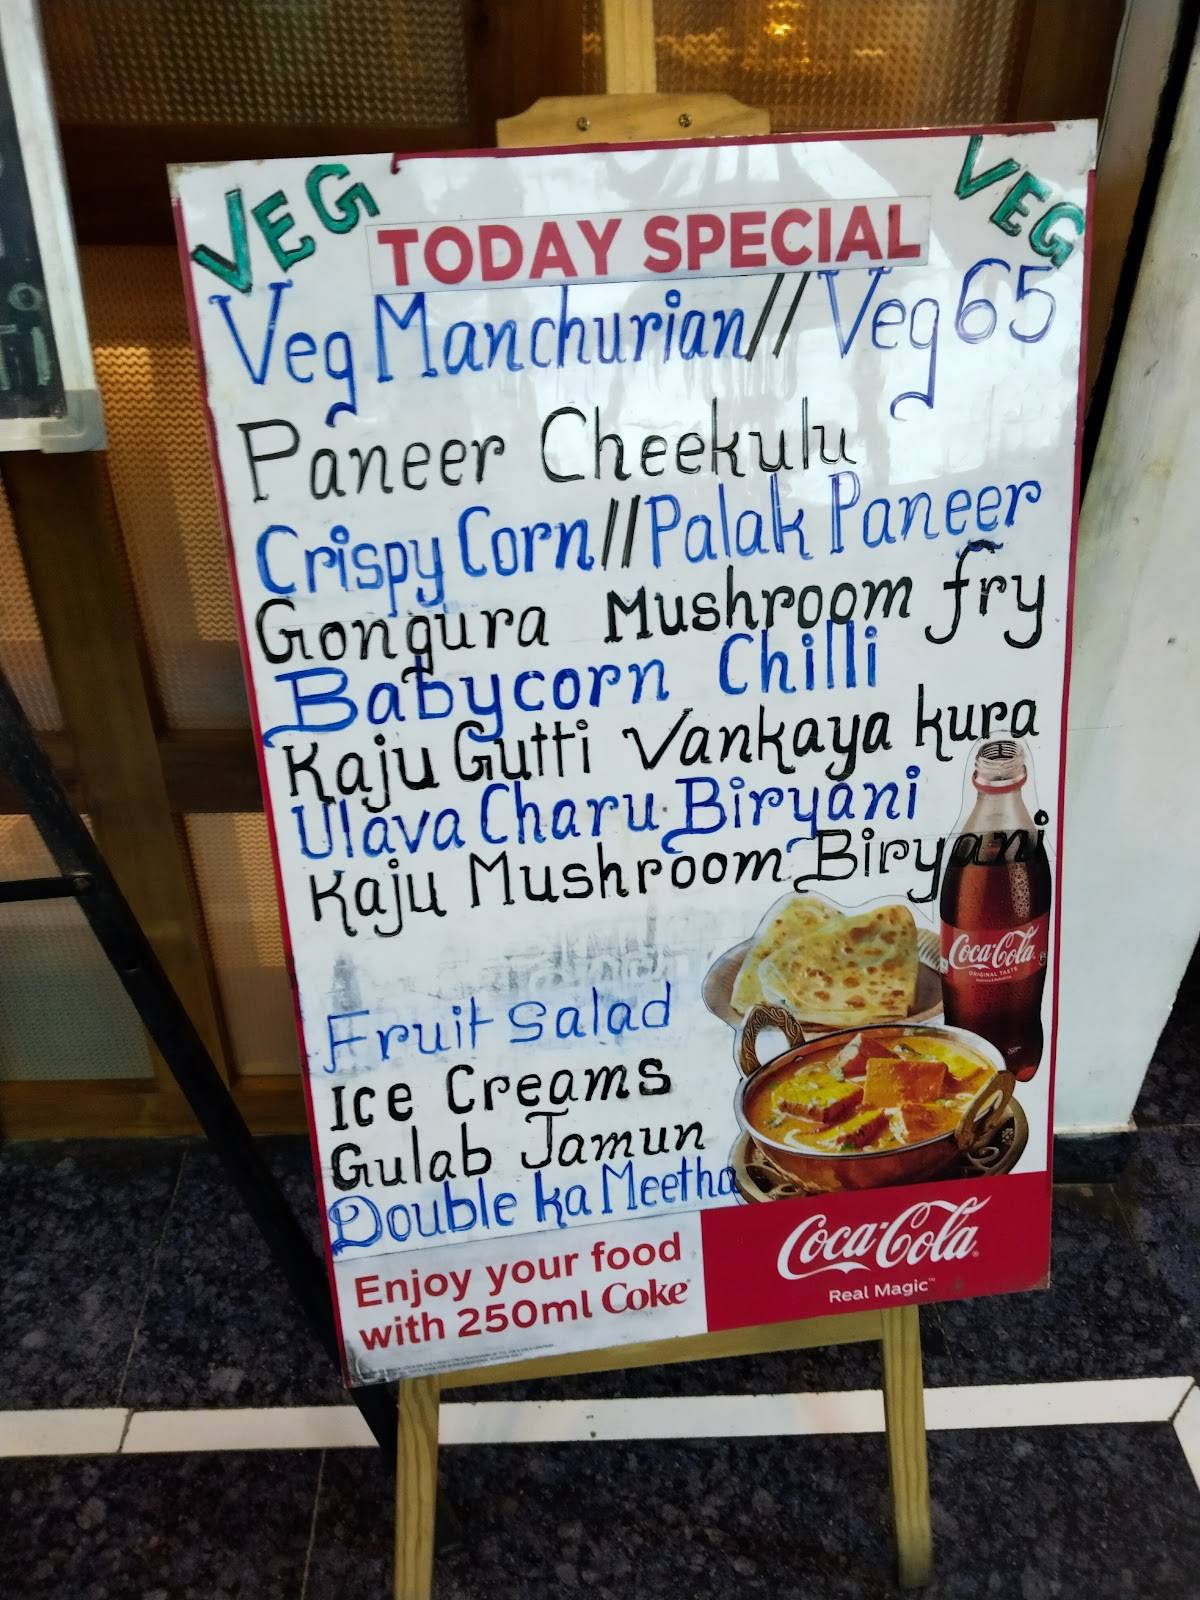 VEG VEG
TODAY SPECIAL
Veg Manchurian // Veg 65
Paneer Cheekulu
Crispy Corn // Palak Paneer
Gongura Mushroom fry
Babycorn Chilli
Kaju Gutti Vankaya kura
Ulava Charu Biryani
Kaju Mushroom Biryani
Coca-Cola
ORIGINAL TASTE
Fruit Salad
Ice Creams
Gulab Jamun
Double ka Meetha
Enjoy your food
with 250ml Coke
Coca-Cola
Real Magic™